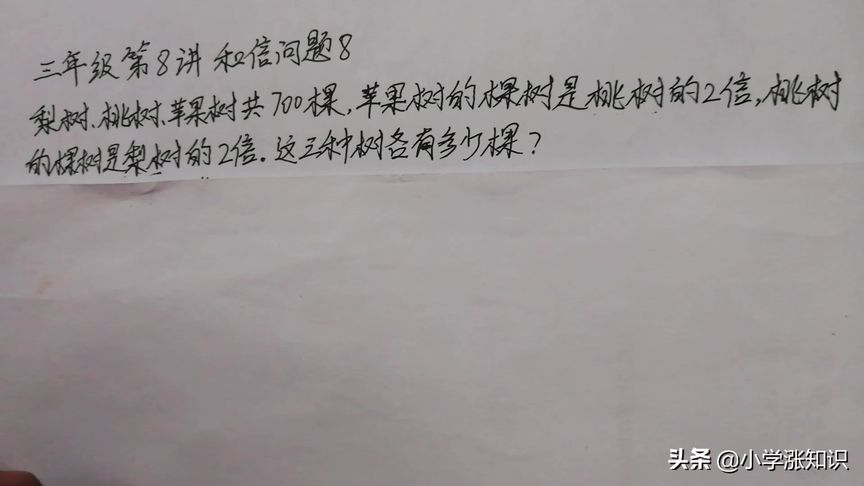 三年级第8讲 和倍问题8
梨树、桃树、苹果树共700棵,苹果树的棵树是桃树的2倍,桃树
的棵树是梨树的2倍。这三种树各有多少棵?
头条 @小学涨知识